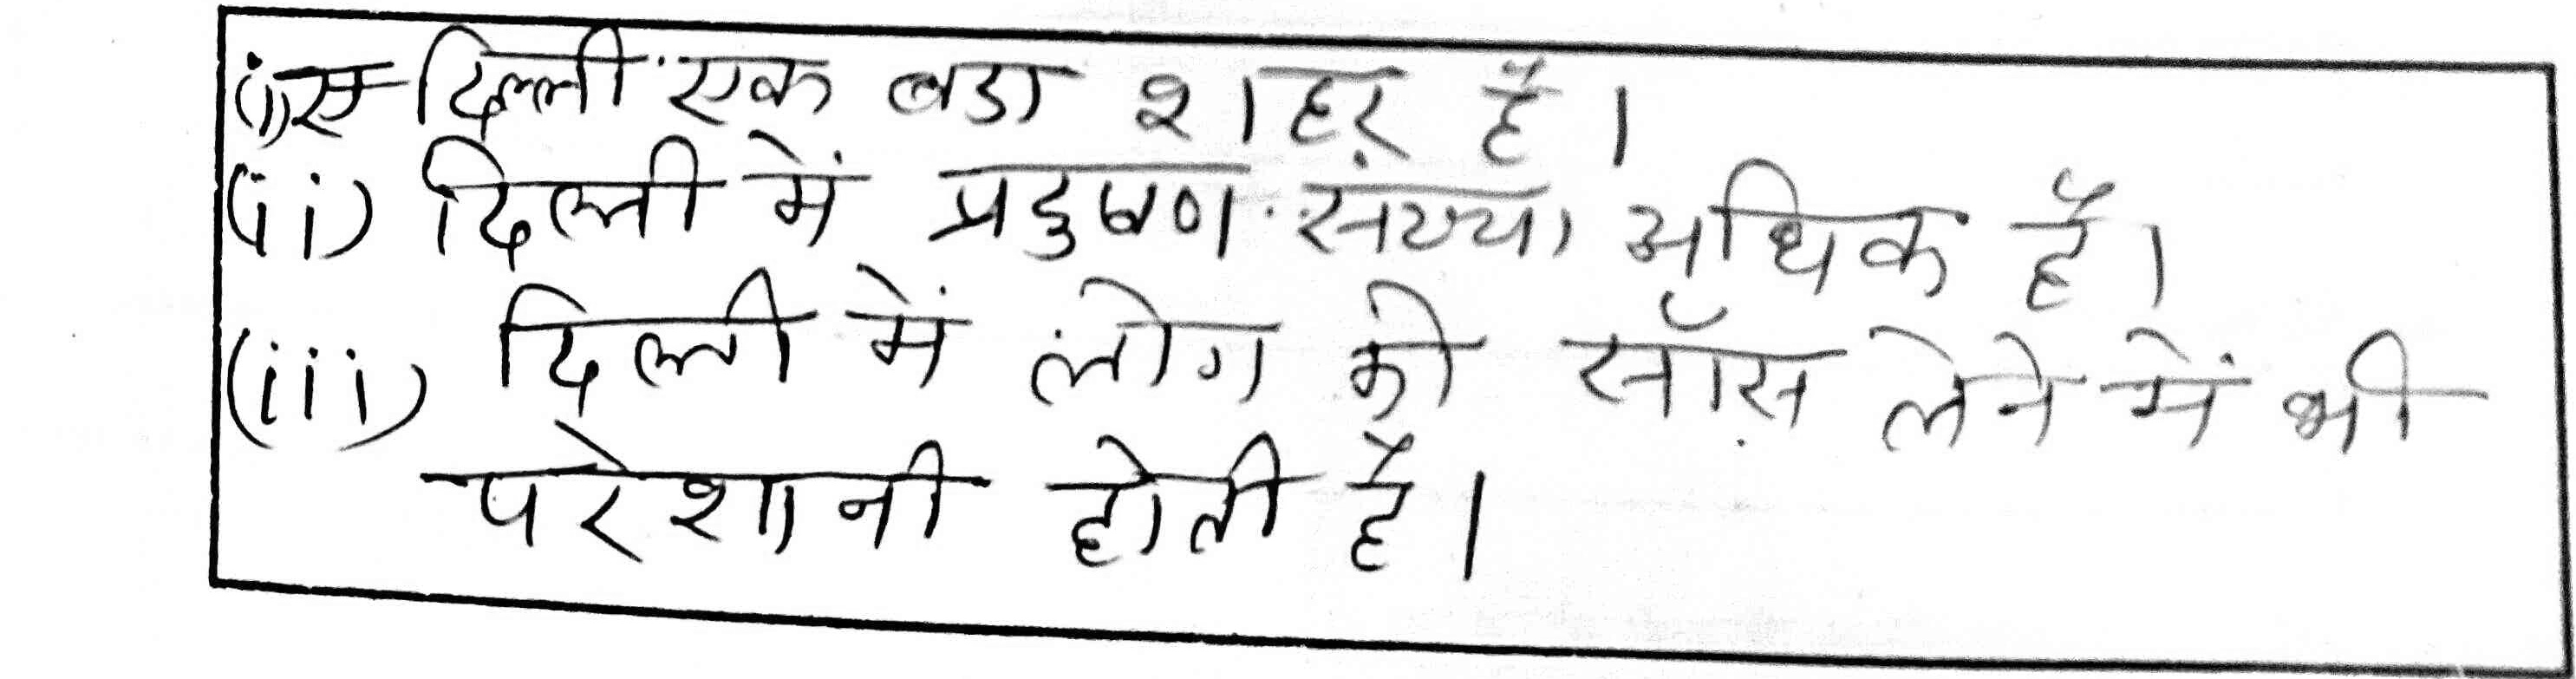 (i) दिल्ली एक बडा शहर है।
(ii) दिल्ली में प्रदुषण संख्या अधिक है।
(iii) दिल्ली में लोग को साँस लेने में भी
परेशानी होती है।